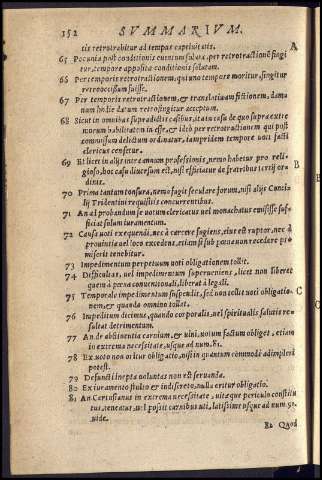 152 SUMMARIUM.
tis retrotrahitur ad tempus expressi actis.
A
65 Pecunia post conditionis euentum soluta, per retrotractionē fingi
tur, tempore apposita conditionis solutam.
66 Per temporis retrotractionem, qui uno tempore moritur, fingitur
retro occisum fuisse.
67 Per temporis retrotractionem, & translatiuam fictionem, damnum
hodie datum retrò fingitur acceptum.
68 Sicut in omnibus supradictis casibus, ita in casu de quo supra extre
morum habilitatem in esse, & ideò per retrotractionem qui post
commissum delictum ordinatur, tamquam tempore uoti facti
clericus censetur.
69 Et licet in alijs iure annum professionis, nemo habetur pro reli-
gioso, hoc casu diuersum est, nisi efficiatur de fratribus tertij or-
dinis.
B
70 Prima tantum tonsura, nemo fugit seculare forum, nisi alijs Conci-
lij Tridentini requisitis concurrentibus.
71 An ad probandum se uotum clericatus uel monachatus emisisse suf-
ficiat solum iuramentum.
72 Causa uoti exequendi, nec à carcere fugiens, eius est ruptor, nec à
prouintia uel loco excedens, etiam si sub pœna non recedere pro
miserit tenebitur.
73 Impedimentum perpetuum uoti obligationem tollit.
74 Difficultas, uel impedimentum superueniens, licet non liberet
quem à pœna conuentionali, liberat à legali.
C
75 Temporale impedimentum suspendit, sed non tollit uoti obligatio-
nem, & quando omnino tollat.
76 Impeditum dicimus, quando corporalis, uel spiritualis salutis re-
sultat detrimentum.
77 An de abstinentia carnium, & uini, uotum factum obliget, etiam
in extrema necessitate, usque ad num. 81.
78 Ex uoto non oritur obligatio, nisi in quantum commodè adimpleri
potest.
79 Defuncti inepta uoluntas non est seruanda.
80 Ex iuramento stulto & indiscreto, nulla oritur obligatio.
81 An Cartusianus in extrema necessitate, uitæque periculo constitu
tus, teneatur, uel possit carnibus uti, latissime usque ad num. 91.
uide.
82 Quod